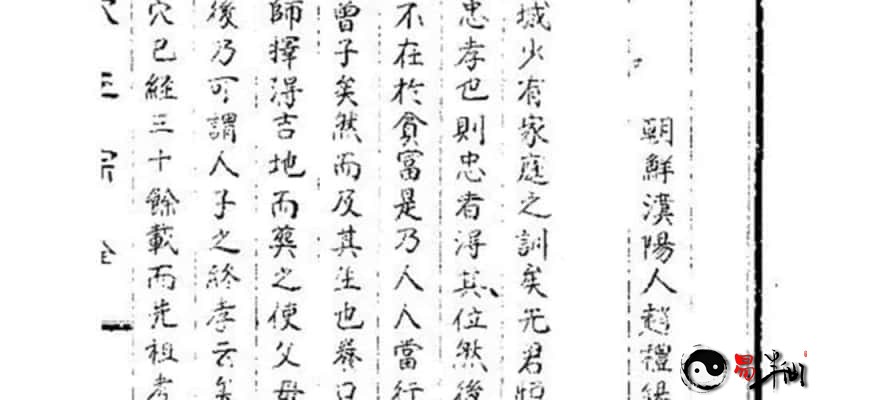 朝鮮漢陽人趙禮錫
域少有家庭之訓矣无君臣
忠孝也則忠者得其位然後
不在於貧富是乃人人當行
曾子矣然而及其生也養口
師擇得吉地而葬之使父母
後乃可謂人子之終孝云矣
穴已經三十餘載而先祖考